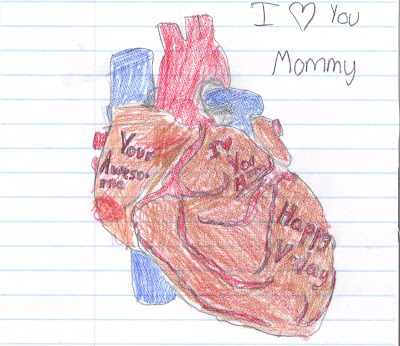 I ♡ You
Mommy
Your
Aweso-
me
I ♥
You
Happy
V-day